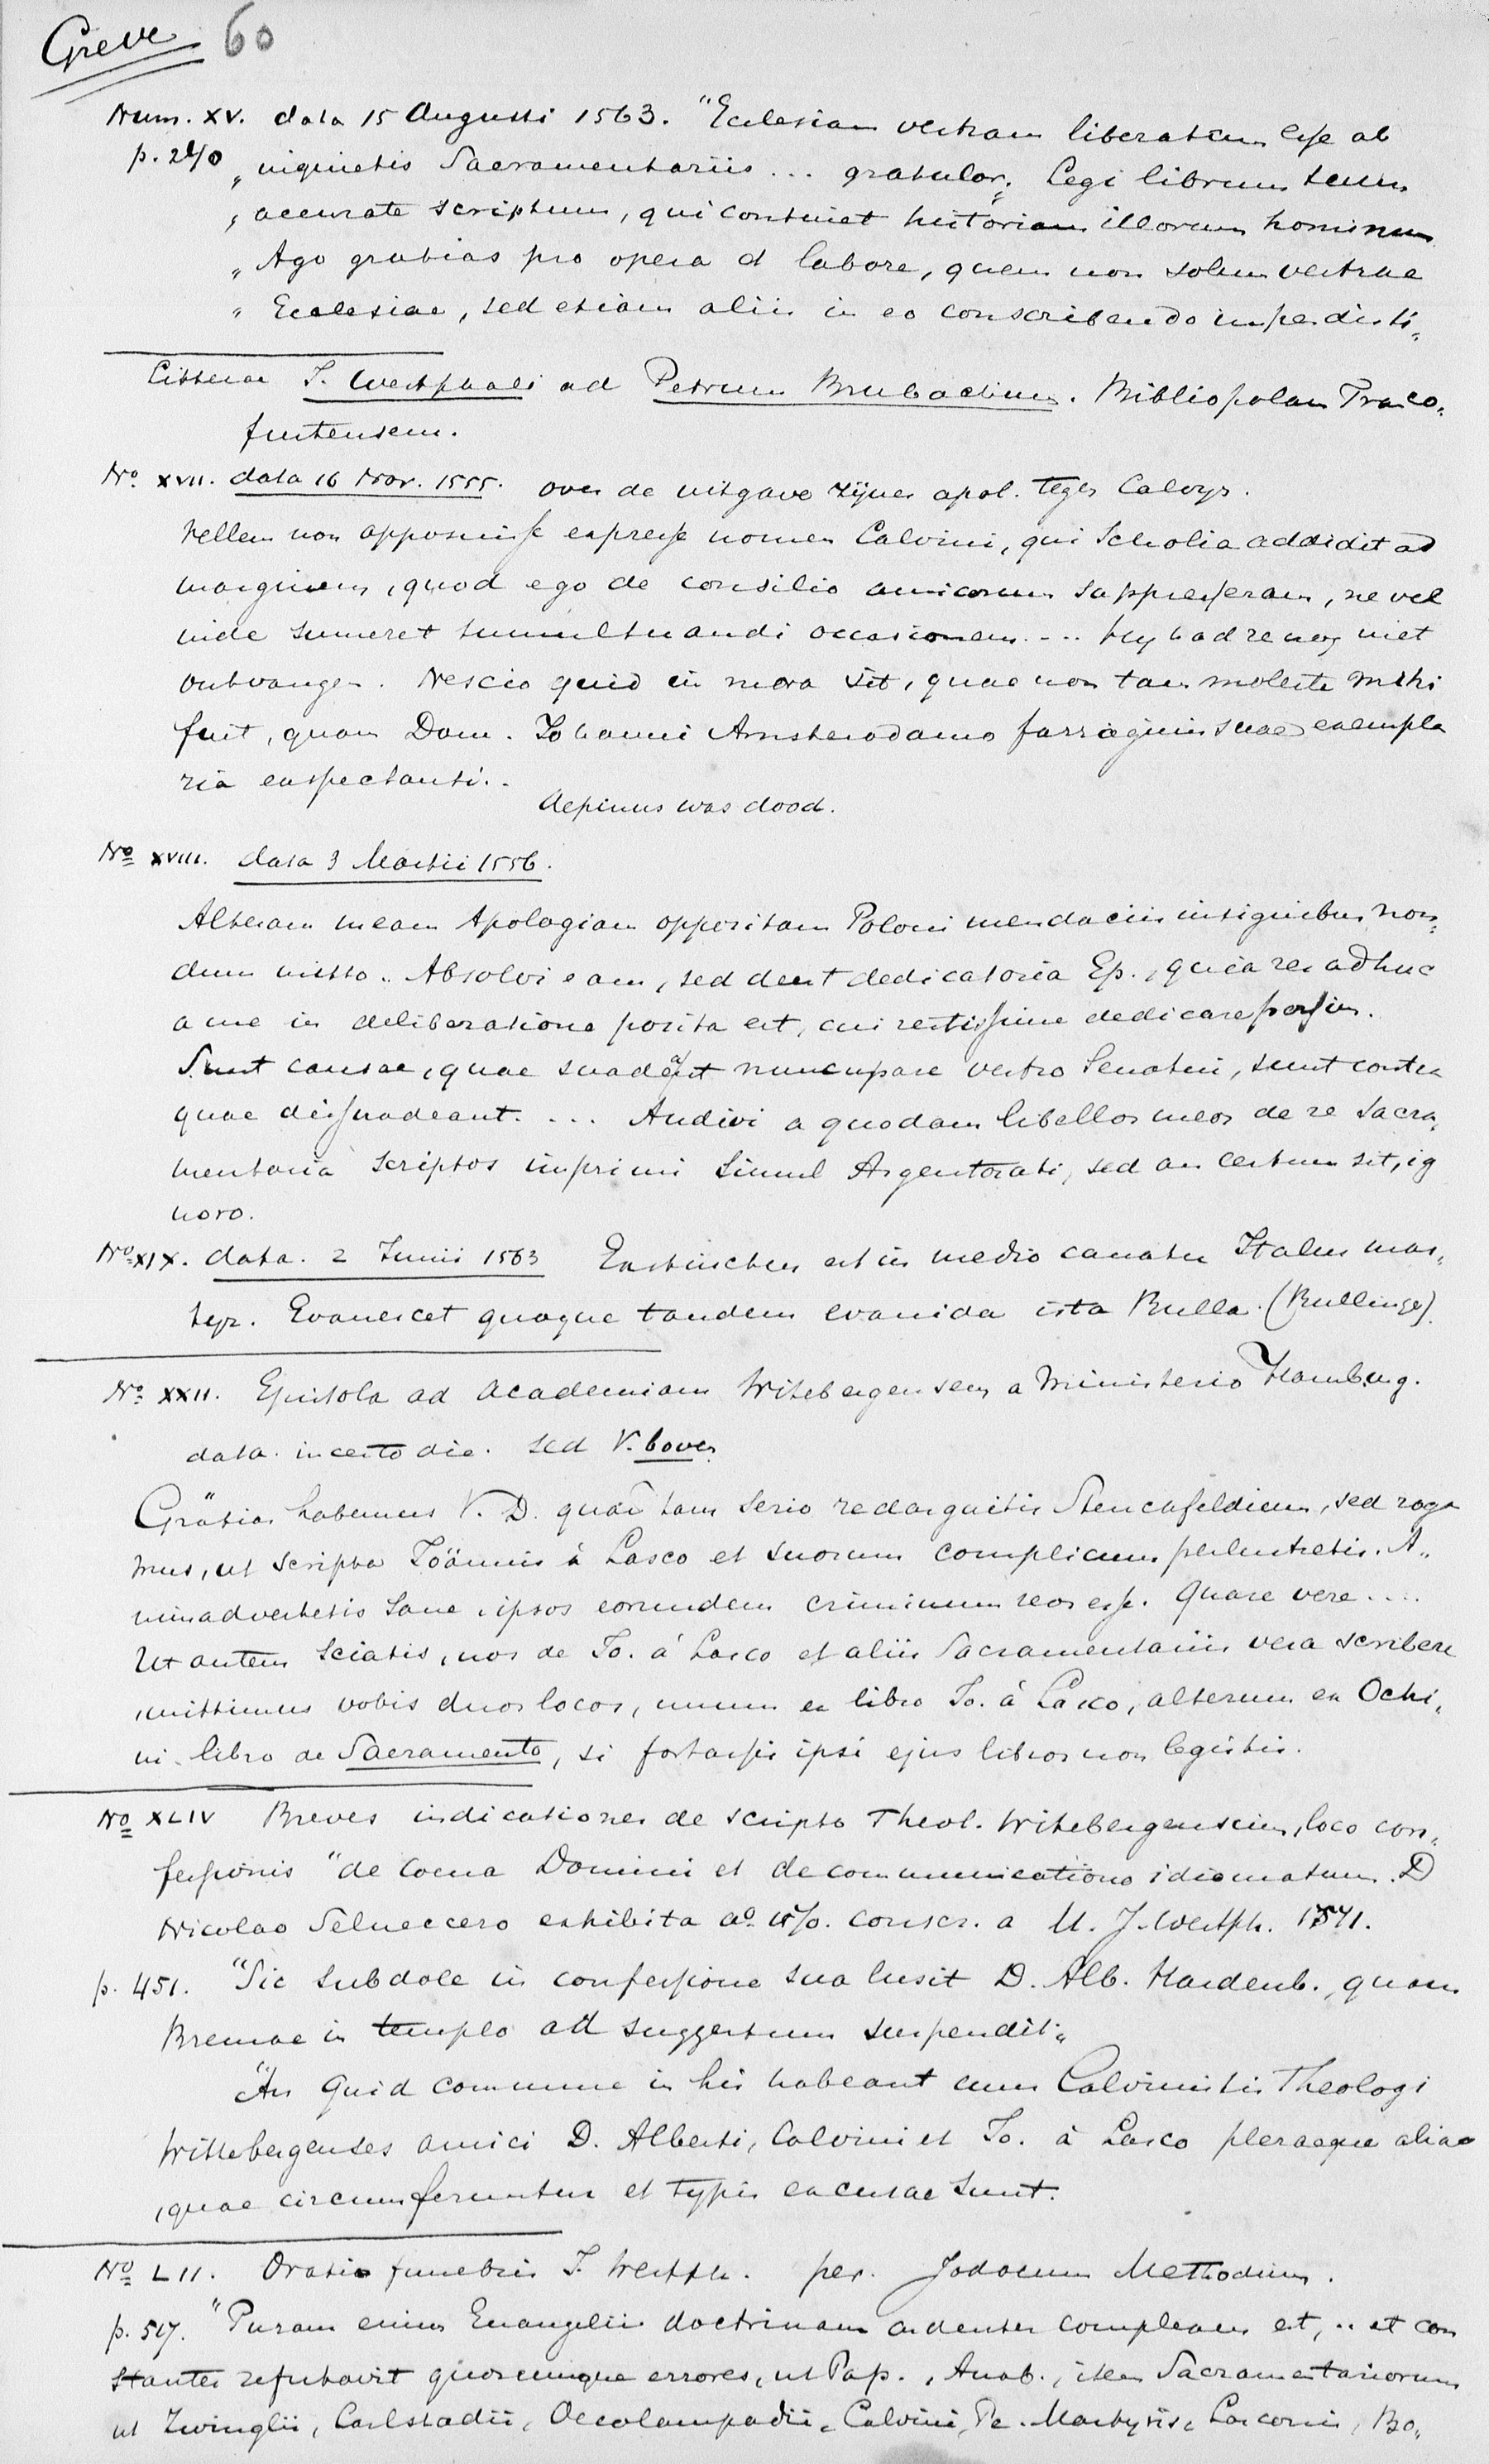 Greve 60
Num. XV. data 15 Augusti 1563. "Ecclesiam vestram liberatam esse ab
p. 240 „ inquietis Sacramentariis ... gratulor„. Legi librum tuum
„ accurate scriptum, qui continet historiam illorum hominum
„ Ago gratias pro opera et labore, quem non solum vestrae
„ Ecclesiae, sed etiam aliis in eo conscribendo impendisti„
Litterae J. Westphali ad Petrum Brubachium. Bibliopolam Franco„
furtensem.
No. XVII. data 16 Nov. 1555. over de uitgave zijner apol. tegen Calvyn.
Vellem non apposuisse expresse nomen Calvini, qui Scholia addidit ad
marginem, quod ego de consilio amicorum suppresseram, ne vel
inde sumeret tumultuandi occasionem. --- Hy had ze nog niet
ontvangen. Nescio quid in mora sit, quae non tam moleste mihi
fuit, quam Dom. Johanni Amsterodamo farraginis suae exempla
ria expectanti.
Aepinus was dood.
No XVIII. data 3 Martii 1556.
Alteram meam Apologiam oppositam Poloni mendaciis insignibus non„
dum mitto. Absolvi eam, sed deest dedicatoria Ep., quia res adhuc
a me in deliberatione posita est, cui rectissime dedicare possim.
Sunt causae, quae suadeant nuncupare vestro Senatui, sunt contra
quae dissuadeant. ... Audivi a quodam libellos meos de re Sacra„
mentaria scriptos imprimi simul Argentorati, sed an certum sit, ig
noro.
No. XIX. data. 2 Junii 1563 Exstinctus est in medio conatu Italus mar„
tyr. Evanescet quoque tandem evanida ista Bulla. (Bullinger).
No. XXII. Epistola ad Academiam Witebergensem a Ministerio Hamburg.
data incerto die. sed V. boven
Grätias habemus V. D. quod tam serio redarguitis Stencafeldium, sed roga
mus, ut scripta Joännis à Lasco et suorum complicum perlustretis. A„
nimadvertetis sane, ipsos eorundem criminum reos esse. Quare vere ....
Ut autem sciatis, nos de Jo. á Lasco et aliis Sacramentariis vera scribere
, mittimus vobis duos locos, unum ex libro Jo. á Lasco, alterum ex Ochi„
ni libro de Sacramento, si fortassis ipsi ejus libros non legistis.
No XLIV Breves indicationes de scripto Theol. Witebergensium, loco con„
fessionis "de Coena Domini et de communicatione idiomatum. D
Nicolao Selneccero exhibita ao. 1570. conscr. a M. J. Westph. 1571.
p. 451. "Sic subdole in confessione sua lusit D. Alb. Hardenb., quam
Bremae in templo ad suggestum suspendit„
"An quid commune in his habeant cum Calvinistis Theologi
Wittebergenses amici D. Alberti, Calvini et Jo. à Lasco pleraeque aliae
, quae circumferuntur et typis excusae sunt.
No LII. Oratio funebris J. Westph. per. Jodocum Methodium.
p. 517. "Puram enim Euangelii doctrinam ardenter complexus est, .. et con
stanter refutavit quoscumque errores, ut Pap., Anab., item Sacramentariorum
ut Zwinglii, Carlstadii, Oecolampadii, Calvini, Pe. Martyris, Lasconis, Bo„